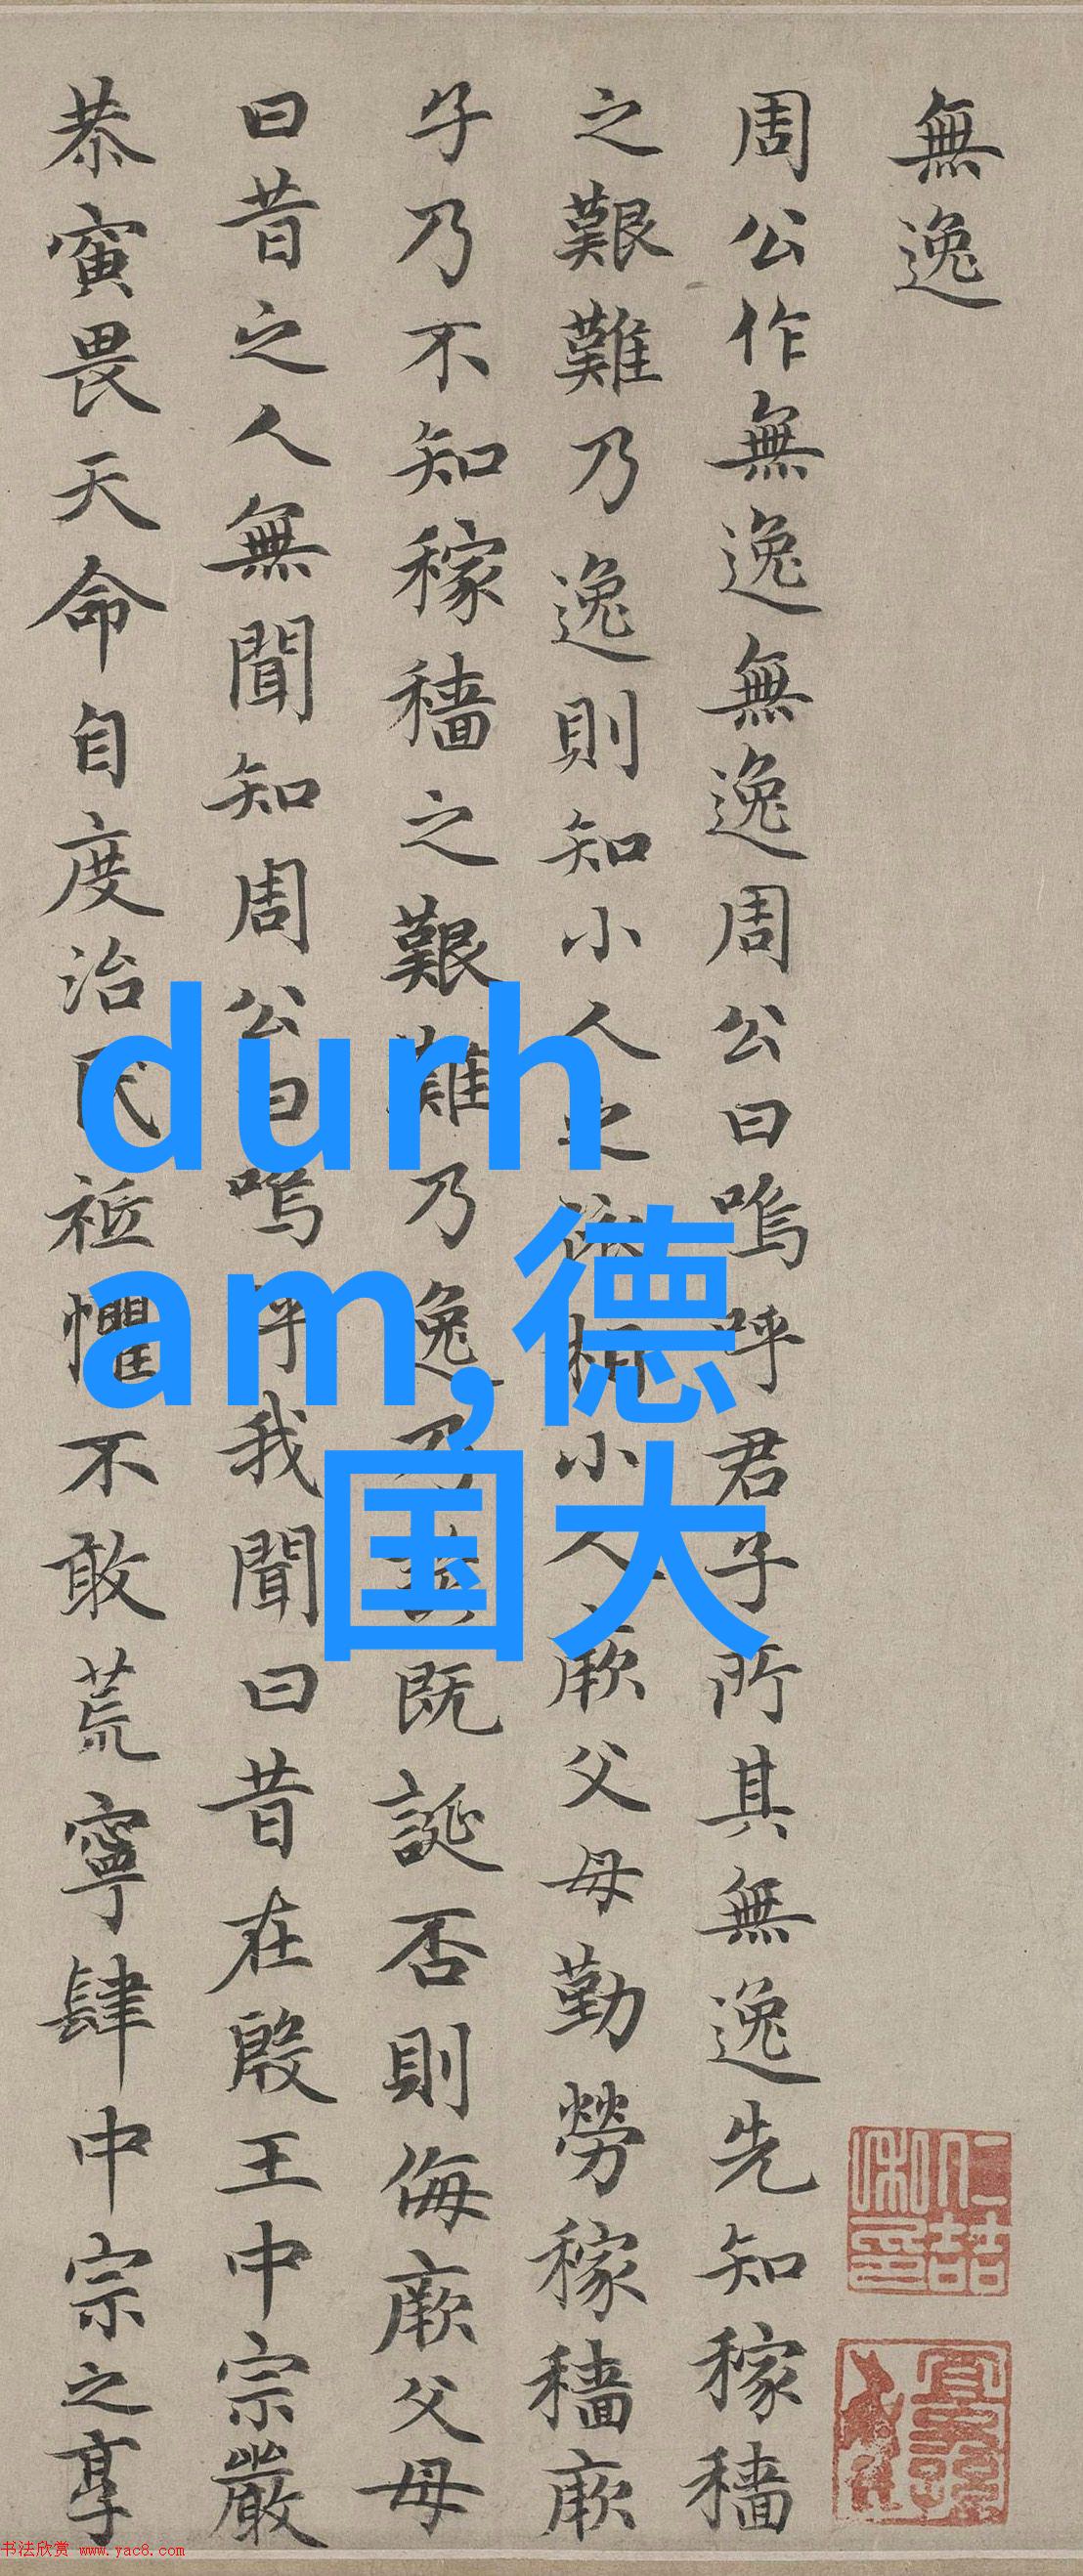 無逸
周公作無逸無逸周公曰嗚呼君子所其無逸先知稼穡
之艱難乃逸則知小人之依相小人厥父母勤勞稼穡厥
子乃不知稼穡之艱難乃逸乃諺既誕否則侮厥父母
曰昔之人無聞知周公曰嗚呼我聞曰昔在殷王中宗嚴
恭寅畏天命自度治民祗懼不敢荒寧肆中宗之享
durh
am,德
国大
书法欣赏 www.yac8.com